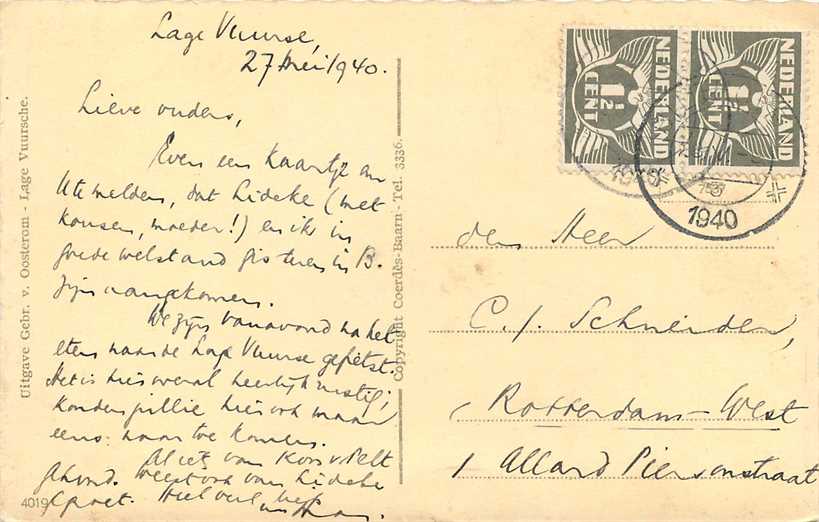 Lage Vuurse,
27 Mei 1940.
Lieve ouders,
Even een kaartje om
U te melden, dat Lideke (met
kousen, moeder!) en ik in
goede welstand gisteren in B.
zijn aangekomen.
We zijn vanavond na het
eten naar de Lage Vuurse gefietst.
Het is hier overal heerlijk rustig;
konden jullie hier ook maar
eens naar toe komen.
Al iets van Kors v. Pelt
gehoord. Weest ook van Lideke
gegroet. Heel veel liefs
Uitgave Gebr. v. Oosterom - Lage Vuursche.
4019
Copyright Coerdès-Baarn - Tel. 3336.
NEDERLAND
1½
CENT
NEDERLAND
1½
CENT
1940
den Heer
C. J. Schneider,
Rotterdam-West
Allard Piersonstraat